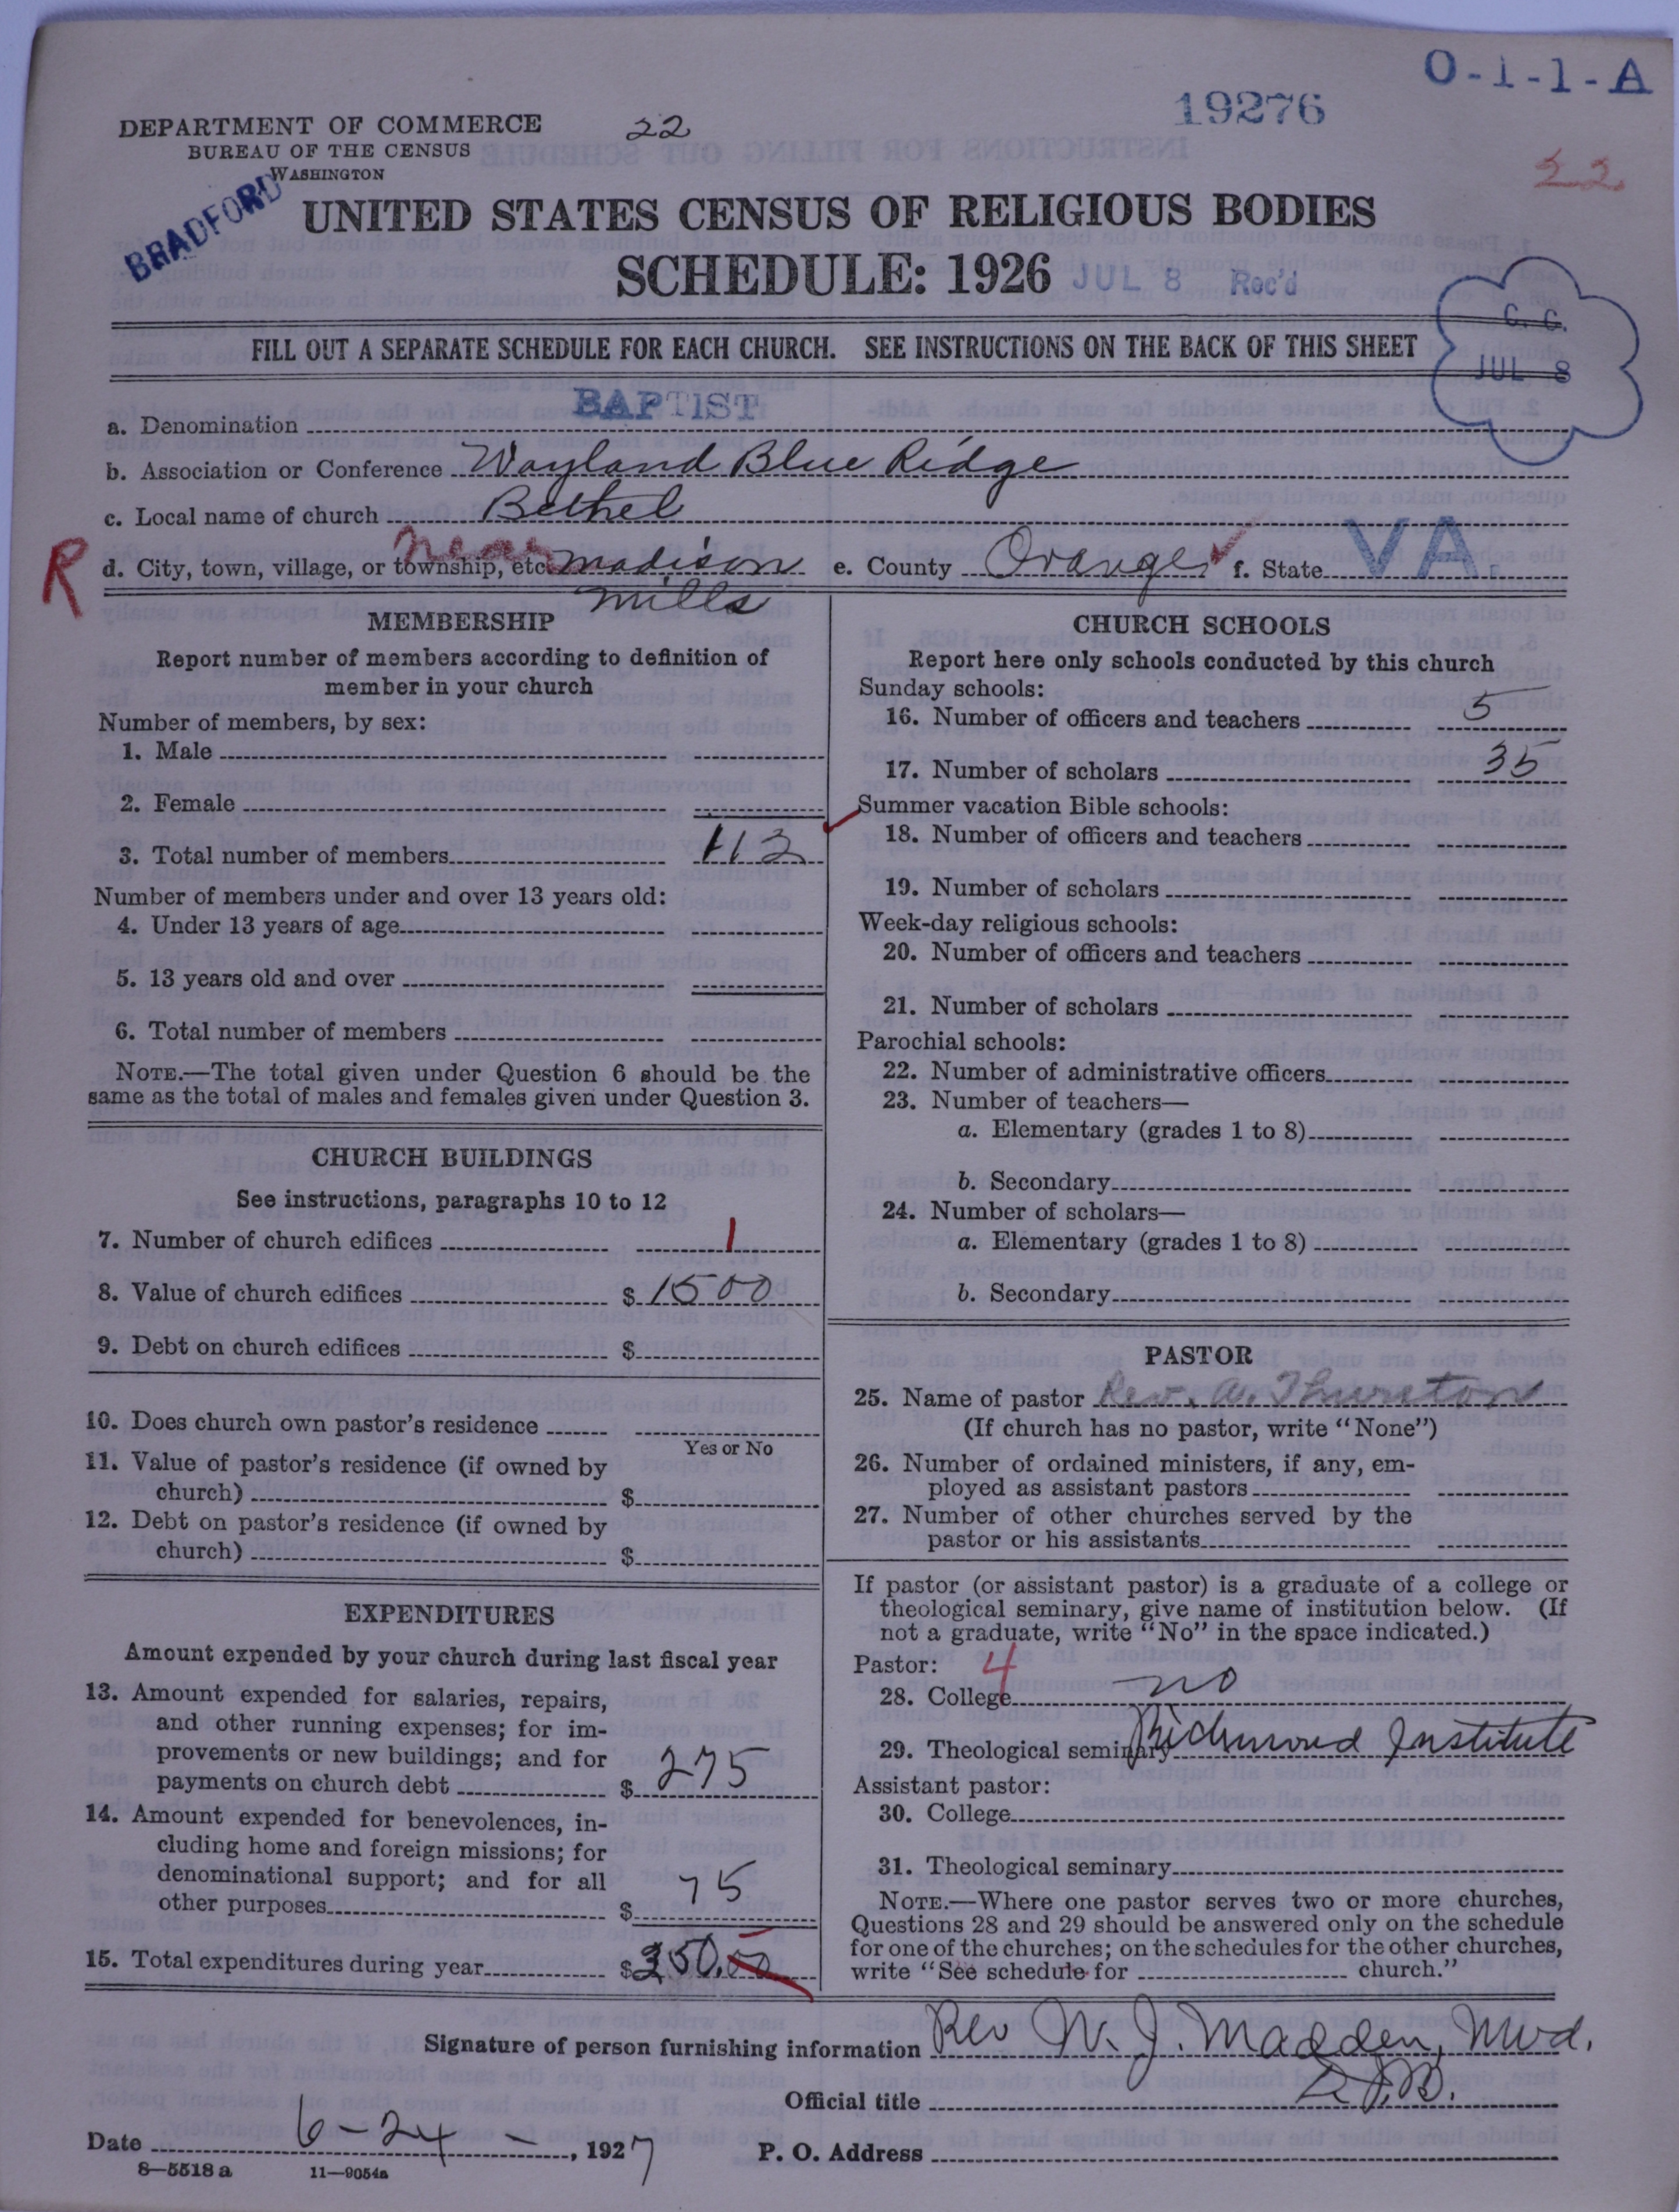 O-1-1-A
19276
DEPARTMENT OF COMMERCE
22
BUREAU OF THE CENSUS
WASHINGTON
22
BRADFORD
UNITED STATES CENSUS OF RELIGIOUS BODIES
SCHEDULE: 1926
JUL 8 Rec'd
C. C.
JUL 8
FILL OUT A SEPARATE SCHEDULE FOR EACH CHURCH. SEE INSTRUCTIONS ON THE BACK OF THIS SHEET
a. Denomination BAPTIST
b. Association or Conference Wayland Blue Ridge
c. Local name of church Bethel
R
d. City, town, village, or township, etc. near Madison Mills e. County Orange f. State VA.
MEMBERSHIP
Report number of members according to definition of
member in your church
Number of members, by sex:
1. Male
2. Female
3. Total number of members 112
Number of members under and over 13 years old:
4. Under 13 years of age
5. 13 years old and over
6. Total number of members
NOTE.—The total given under Question 6 should be the
same as the total of males and females given under Question 3.
CHURCH BUILDINGS
See instructions, paragraphs 10 to 12
7. Number of church edifices 1
8. Value of church edifices $ 1500
9. Debt on church edifices $
10. Does church own pastor's residence
Yes or No
11. Value of pastor's residence (if owned by
church) $
12. Debt on pastor's residence (if owned by
church) $
EXPENDITURES
Amount expended by your church during last fiscal year
13. Amount expended for salaries, repairs,
and other running expenses; for im-
provements or new buildings; and for
payments on church debt $ 275
14. Amount expended for benevolences, in-
cluding home and foreign missions; for
denominational support; and for all
other purposes $ 75
15. Total expenditures during year $ 350.00
CHURCH SCHOOLS
Report here only schools conducted by this church
Sunday schools:
16. Number of officers and teachers 5
17. Number of scholars 35
Summer vacation Bible schools:
18. Number of officers and teachers
19. Number of scholars
Week-day religious schools:
20. Number of officers and teachers
21. Number of scholars
Parochial schools:
22. Number of administrative officers
23. Number of teachers—
a. Elementary (grades 1 to 8)
b. Secondary
24. Number of scholars—
a. Elementary (grades 1 to 8)
b. Secondary
PASTOR
25. Name of pastor Rev. W. Thurston
(If church has no pastor, write "None")
26. Number of ordained ministers, if any, em-
ployed as assistant pastors
27. Number of other churches served by the
pastor or his assistants
If pastor (or assistant pastor) is a graduate of a college or
theological seminary, give name of institution below. (If
not a graduate, write "No" in the space indicated.)
Pastor: 4
28. College no
29. Theological seminary Richmond Institute
Assistant pastor:
30. College
31. Theological seminary
NOTE.—Where one pastor serves two or more churches,
Questions 28 and 29 should be answered only on the schedule
for one of the churches; on the schedules for the other churches,
write "See schedule for church."
Signature of person furnishing information Rev W. J. Madden,
Official title
Date 6-24-, 1927
P. O. Address
8—5518 a
11—9054a